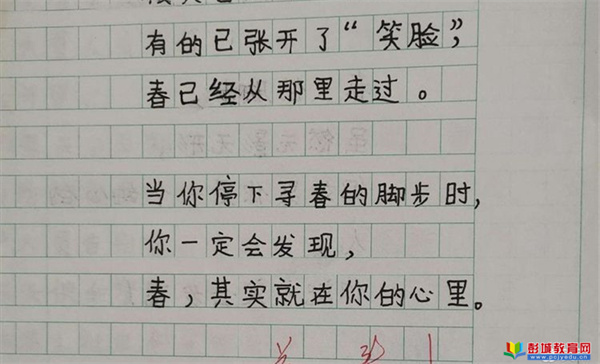 有的已张开了“笑脸”，
春已经从那里走过。
当你停下寻春的脚步时，
你一定会发现，
春，其实就在你的心里。
彭城教育网
www.pcjyedu.cn